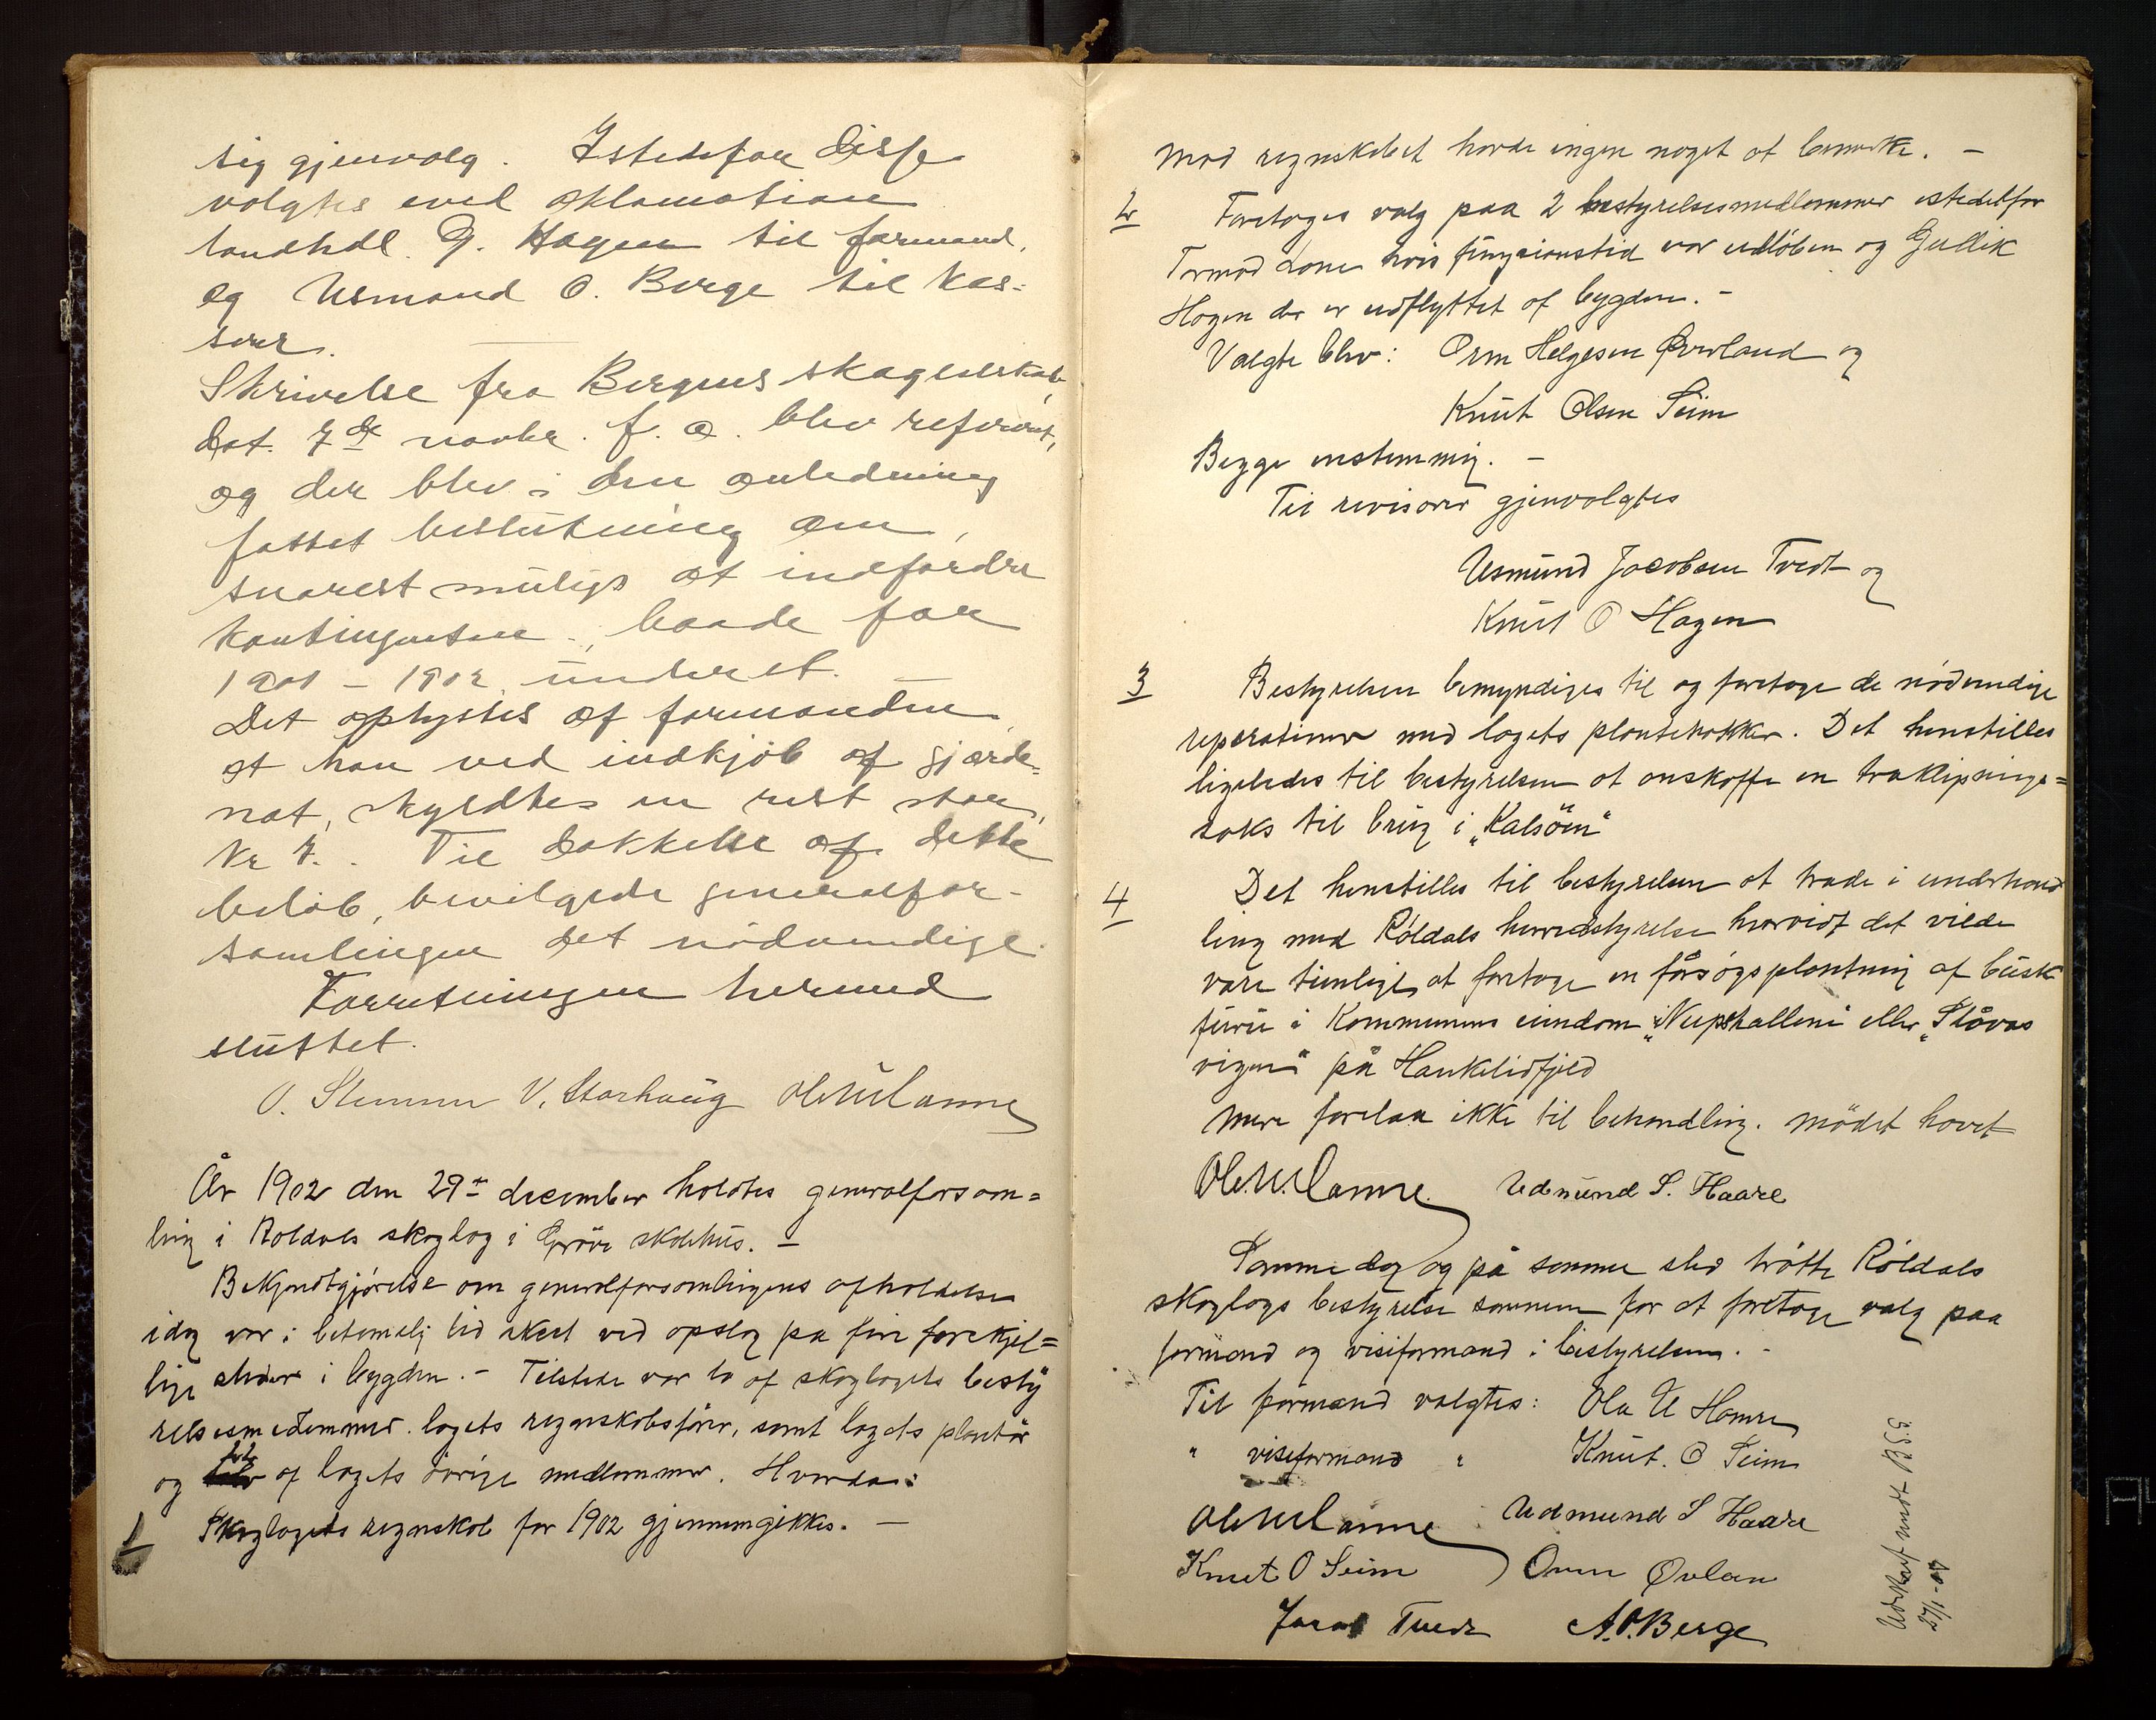 sig gjenvalg. Istedefor disse
valgtes ved aklamation
landhdl. G. Hagen til formand,
og Asmund O. Berge til kas-
serer.
Skrivelse fra Bergens skogselskab
dat. 7de novbr. f. a. blev referert,
og der blev i den anledning
fattet beslutning om,
snarest muligt at indfordre
kontingenten, baade for
1901 - 1902 underet.
Det oplystes af formanden
at han ved indkjöb af gjærde-
nat, skyldtes en rest stor,
kr 7. . Til dækkelse af dette
belöb, bevilgede generalfor-
samlingen det nödvendige.
Forretningen hermed
sluttet.
O. Stemmen V. Storhaug Ole U Hamre
År 1902 den 29de december holdtes generalforsam=
ling i Röldals skoglag i Gröve skolehus. -
Bekjendtgjörelse om generalforsamlingens afholdelse
idag var i betimelig tid skeet ved opslag på fire forskjel=
lige steder i bygden. - Tilstede var to af skoglagets besty
relsesmedlemmer. lagets regnskabsförer, samt lagets plantör
og af lagets övrige medlemmer. Hvorda:
1 Skoglagets regnskab for 1902 gjennemgikkes. -
Mod regnskabet havde ingen noget at bemerke. -
2 Foretoges valg paa 2 bestyrelsesmedlemmer istedetfor
Tormod Lone hvis fungsionstid var udlöben og Gullik
Hagen der er udflyttet af bygden. -
Valgte blev: Orm Helgesen Øverland og
Knut Olsen Seim
Begge enstemmig. -
Til revisorer gjenvalgtes
Asmund Jacobsen Tvedt og
Knut O Hagen
3 Bestyrelsen bemyndiges til og foretage de nödvendige
reperationer med lagets plantehakker. Det henstilles
ligeledes til bestyrelsen at anskaffe en traklipnings=
saks til brug i "Kalsöen"
4 Det henstilles til bestyrelsen at træde i underhand
ling med Röldals herredstyrelse hvorvidt det vilde
være timligt, at foretage en försögsplantning af busk
furu i Kommunens eiendom "Nupshallene eller "Ståvas
vigen" på Haukelidfjeld
Mere forelaa ikke til behandling. Mödet hævet
Ole. U. Hamre. Asmund S. Haare
Samme dag og på samme sted trådte Röldals
skoglags bestyrelse sammen for at foretage valg paa
formand og viseformand i bestyrelsen. -
Til formand valgtes: Ola U Hamre
" viseformand " Knut. O Seim
Ole U Hamre Asmund S Haare
Knut O Seim Orm Øvland
Jacob Tvedt A. O. Berge
Udskrift sendt B.S.S.
27/1-03